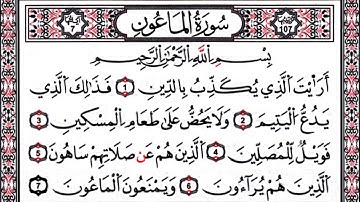 سُورَةُ المَاعُونِ
آيَاتُهَا 7
107
بِسْمِ اللَّهِ الرَّحْمَٰنِ الرَّحِيمِ
أَرَأَيْتَ الَّذِي يُكَذِّبُ بِالدِّينِ 1 فَذَٰلِكَ الَّذِي
يَدُعُّ الْيَتِيمَ 2 وَلَا يَحُضُّ عَلَىٰ طَعَامِ الْمِسْكِينِ 3
فَوَيْلٌ لِلْمُصَلِّينَ 4 الَّذِينَ هُمْ عَن صَلَاتِهِمْ سَاهُونَ 5
الَّذِينَ هُمْ يُرَاءُونَ 6 وَيَمْنَعُونَ الْمَاعُونَ 7